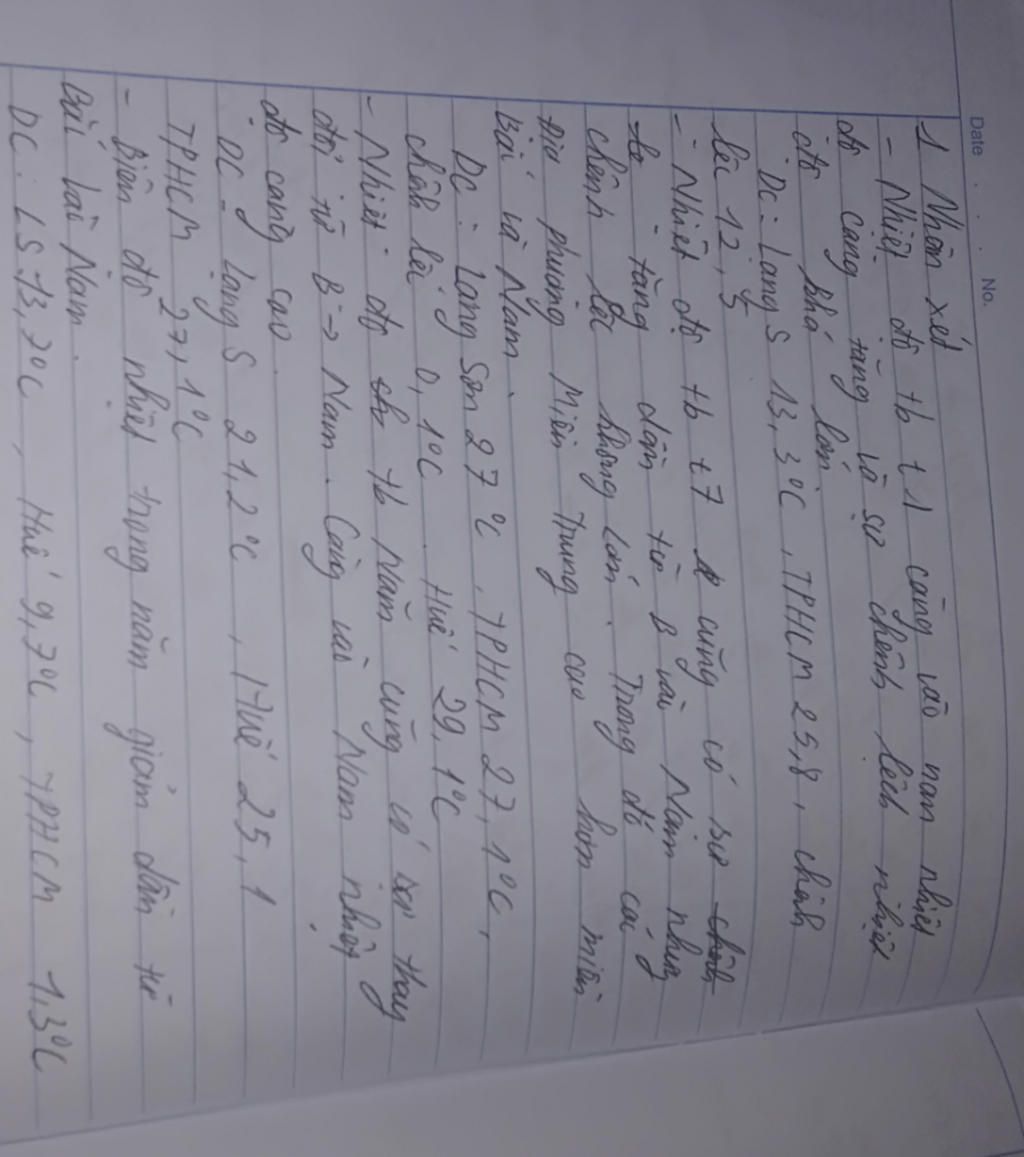 Date No.
1 Nhận xét
- Nhiệt độ tb t1 càng vào nam nhiệt
độ càng tăng và sự chênh lệch nhiệt
độ khá lớn
DC: Lạng S 13,3°C, TPHCM 25,8, chênh
lệch 12,5
- Nhiệt độ tb t7 cũng có sự
tăng dần từ B vào Nam nhưng
chênh lệch không lớn. Trong đó các
địa phương Miền Trung cao hơn miền
Bắc và Nam.
DC: Lạng Sơn 27°C, TPHCM 27,1°C,
chênh lệch 0,1°C. Huế 29,1°C
- Nhiệt độ tb Năm cũng có sự thay
đổi từ B → Nam. Càng vào Nam nhiệt
độ càng cao.
DC: Lạng S 21,2°C, Huế 25,1
TPHCM 27,1°C
- Biên độ nhiệt trong năm giảm dần từ
Bắc vào Nam.
DC: LS 13,7°C, Huế 9,7°C, TPHCM 1,3°C